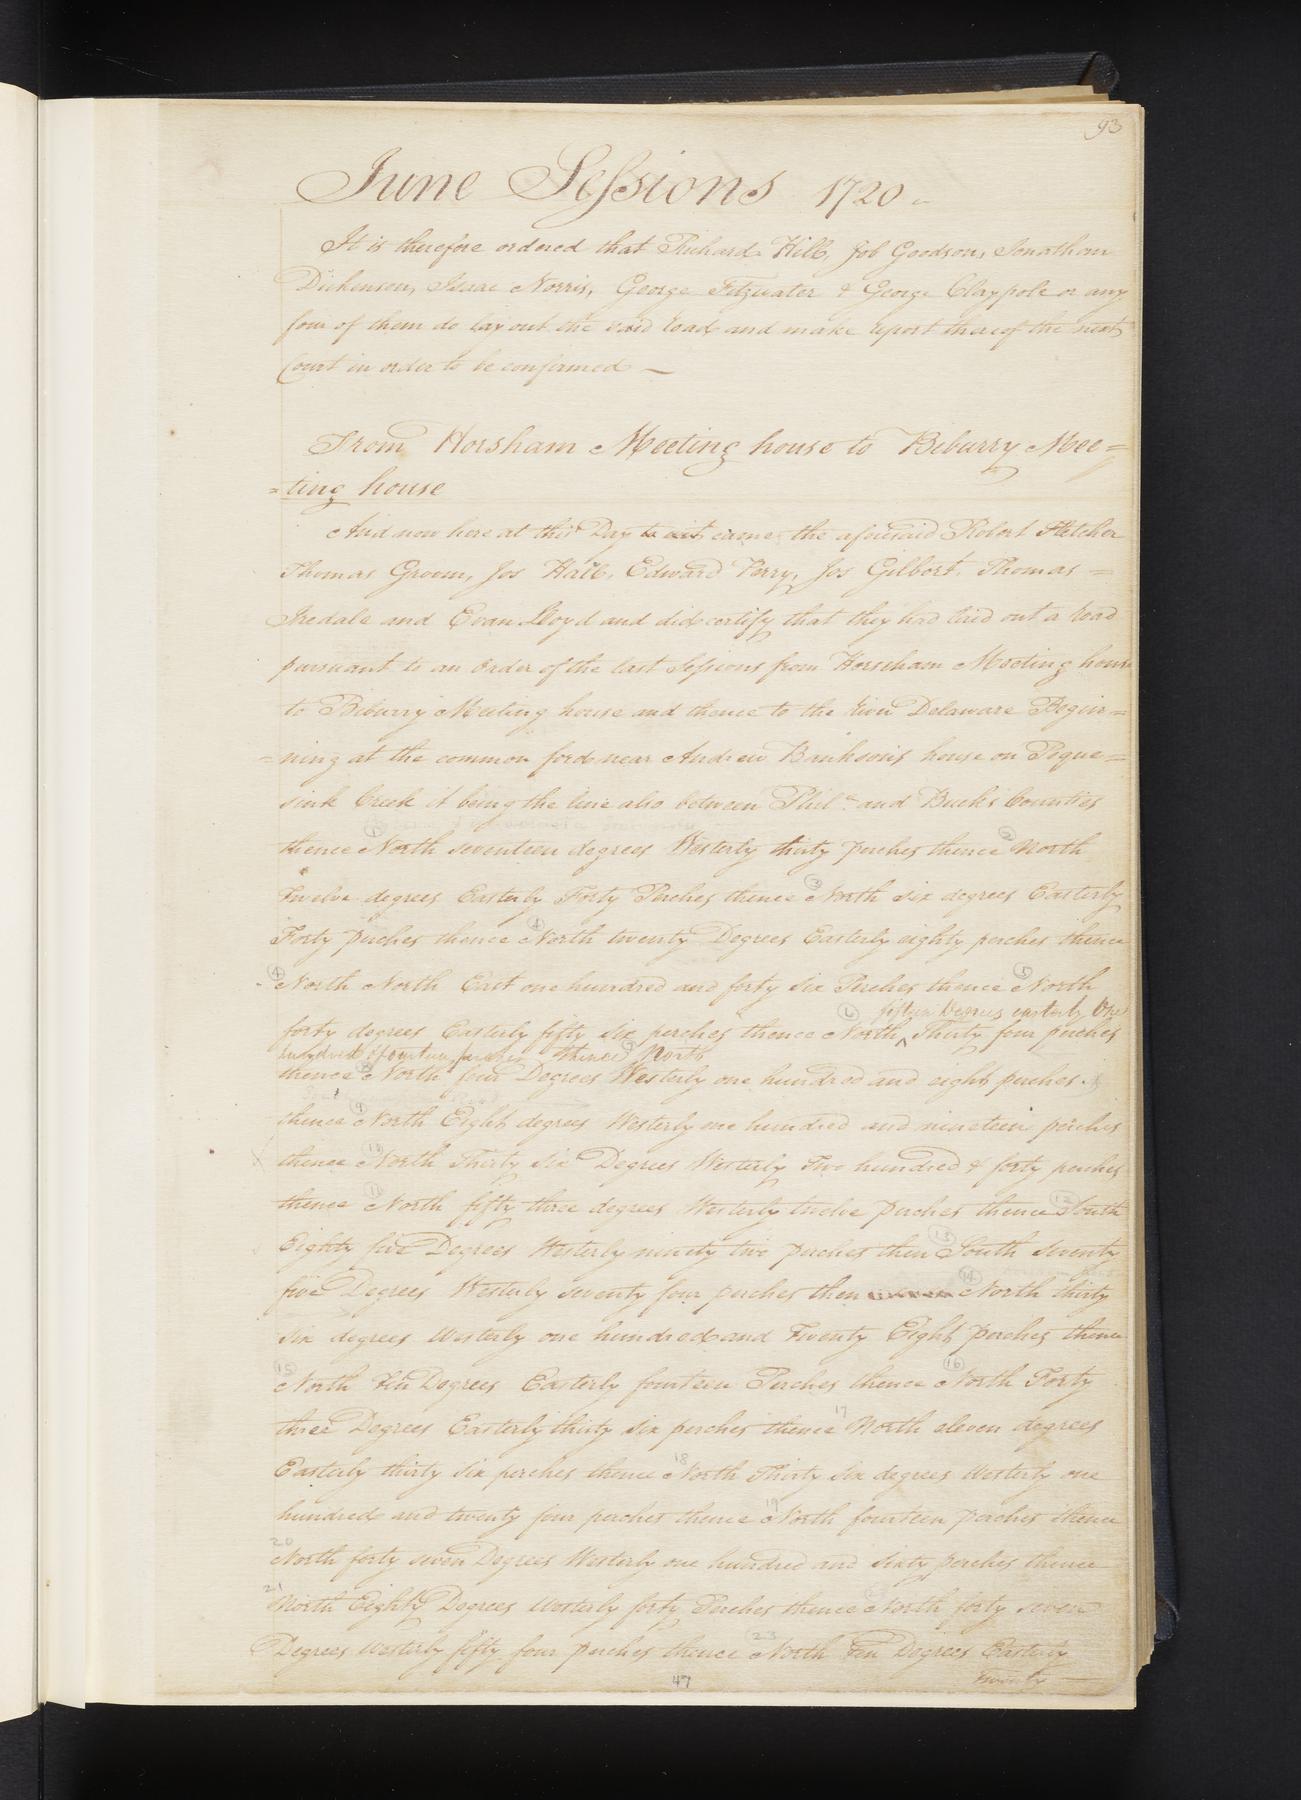 93
June Sessions 1720
It is therefore ordered that Richard Hill, Job Goodson, Jonathan
Dickenson, Isaac Norris, George Fitzwater & George Claypole or any
four of them do lay out the said road and make report thereof the next
Court in order to be confirmed —
From Horsham Meeting house to Biburry Mee=
=ting house
And now here at this Day to wit came the aforesaid Robert Fletcher
Thomas Groom, Jos Hall, Edward Parry, Jos Gilbert, Thomas =
Iredale and Evan Lloyd and did certify that they had laid out a road
pursuant to an order of the last Sessions from Horseham Meeting house
to Biburry Meeting house and thence to the River Delaware Begin=
=ning at the common ford near Andrew Bankson's house on Poque=
sink Creek it being the line also between Phila and Buck's Counties
1 2
thence North seventeen degrees Westerly thirty perches thence North
3
twelve degrees Easterly Forty Perches thence North six degrees Easterly
4
Forty perches thence North twenty Degrees Easterly eighty perches thence
4 5
North North East one hundred and forty six Perches thence North
6 fifteen Degrees easterly One
forty degrees Easterly fifty six perches thence North ^ Thirty four perches
hundred & fourteen perches thence 7 North
8
thence North four Degrees Westerly one hundred and eight perches
9
thence North Eight degrees Westerly one hundred and nineteen perches
10
thence North Thirty Six Degrees Westerly Two hundred & forty perches
11 12
thence North fifty three degrees Westerly twelve perches thence South
13
Eighty five Degrees Westerly ninety two perches then South seventy
14
five Degrees Westerly seventy four perches then North thirty
six degrees Westerly one hundred and Twenty Eight perches thence
15 16
North ten Degrees Easterly fourteen Perches thence North Forty
17
three Degrees Easterly thirty six perches thence North eleven degrees
18
Easterly thirty six perches thence North Thirty Six degrees Westerly one
19
hundred and twenty four perches thence North fourteen perches thence
20
North forty seven Degrees Westerly one hundred and sixty perches thence
21
North Eighty Degrees Westerly forty Perches thence North forty seven
23
Degrees Westerly fifty four perches thence North ten Degrees Easterly
twenty
47